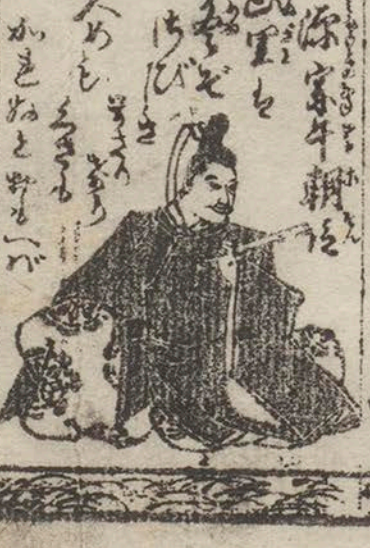 源宗于朝臣
山里は
冬ぞ
さびしさ
まさりける
人めも
くさも
かれぬとおもへば